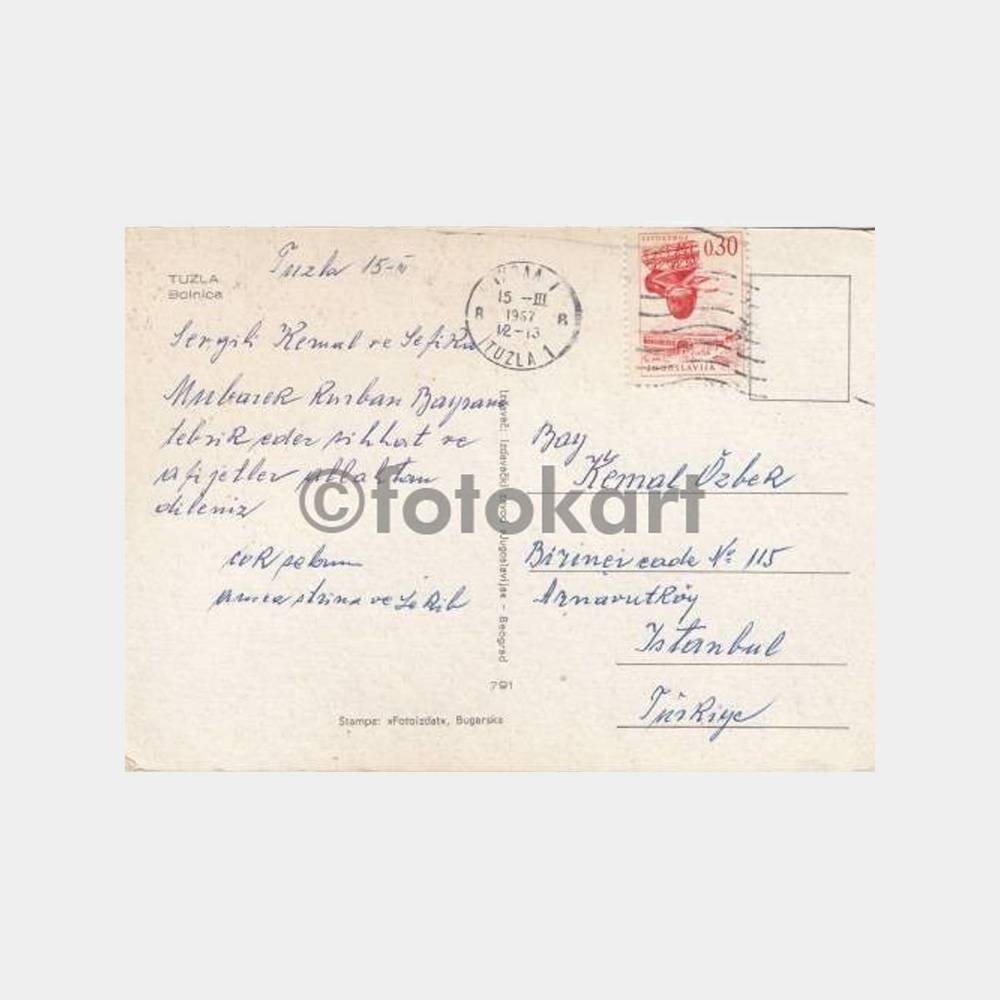 TUZLA
Bolnica
Tuzla 15-III
Sevgili Kemal ve Sefika
Mubarek Kurban Bayramı
tebrik eder sihhat ve
afijetler allahtan
dileriz
çok selam
amca strina ve Sakib
15 -III
1967
12-13
TUZLA 1
B B
0.30
JUGOSLAVIJA
Izdavač: Izdavački zavod »Jugoslavija« - Beograd
791
Stampa: »Fotoizdat«, Bugarska
Bay
Kemal Özbek
Birinci cade № 115
Arnavutköy
Istanbul
Türkiye
©fotokart